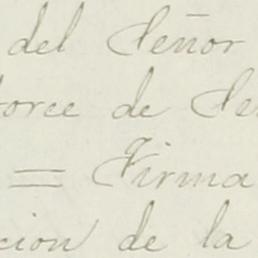 del Señor
torce de Se
= Firma
cion de la